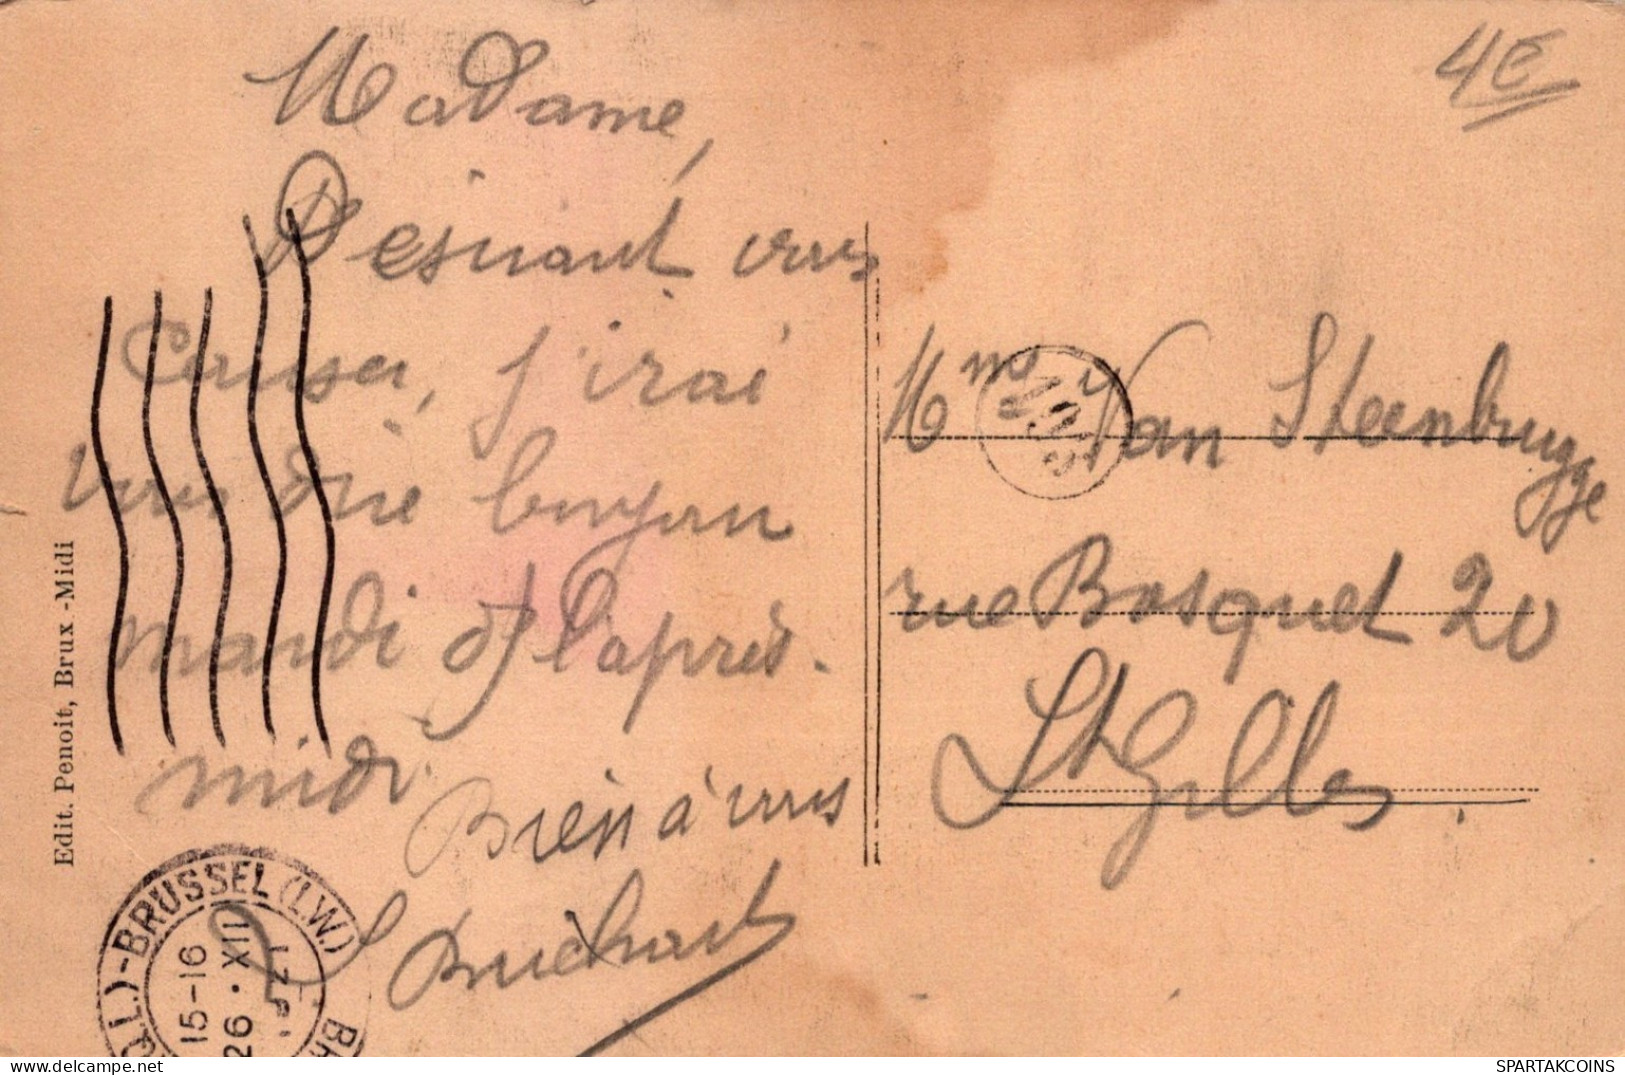 4€
Madame,
Desirant vous
Causer, j'irai
vous dire bonjour
mardi ds l'après-
midi.
Bien à vous
Mme Van Steenbrugge
rue Bosquet 20
St Gilles.
195
Edit. Penoit, Brux-Midi
BRUSSEL (I.W.)
15-16
26·XII
SPARTAKCOINS